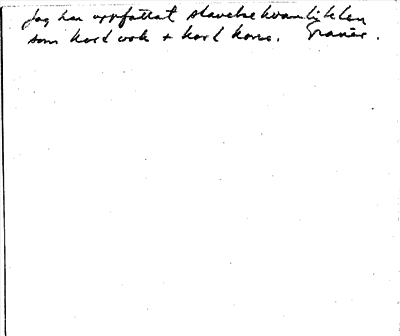 Jag har uppfattat stavelsekvantiteten
som kort vok + kort kons. Granér.